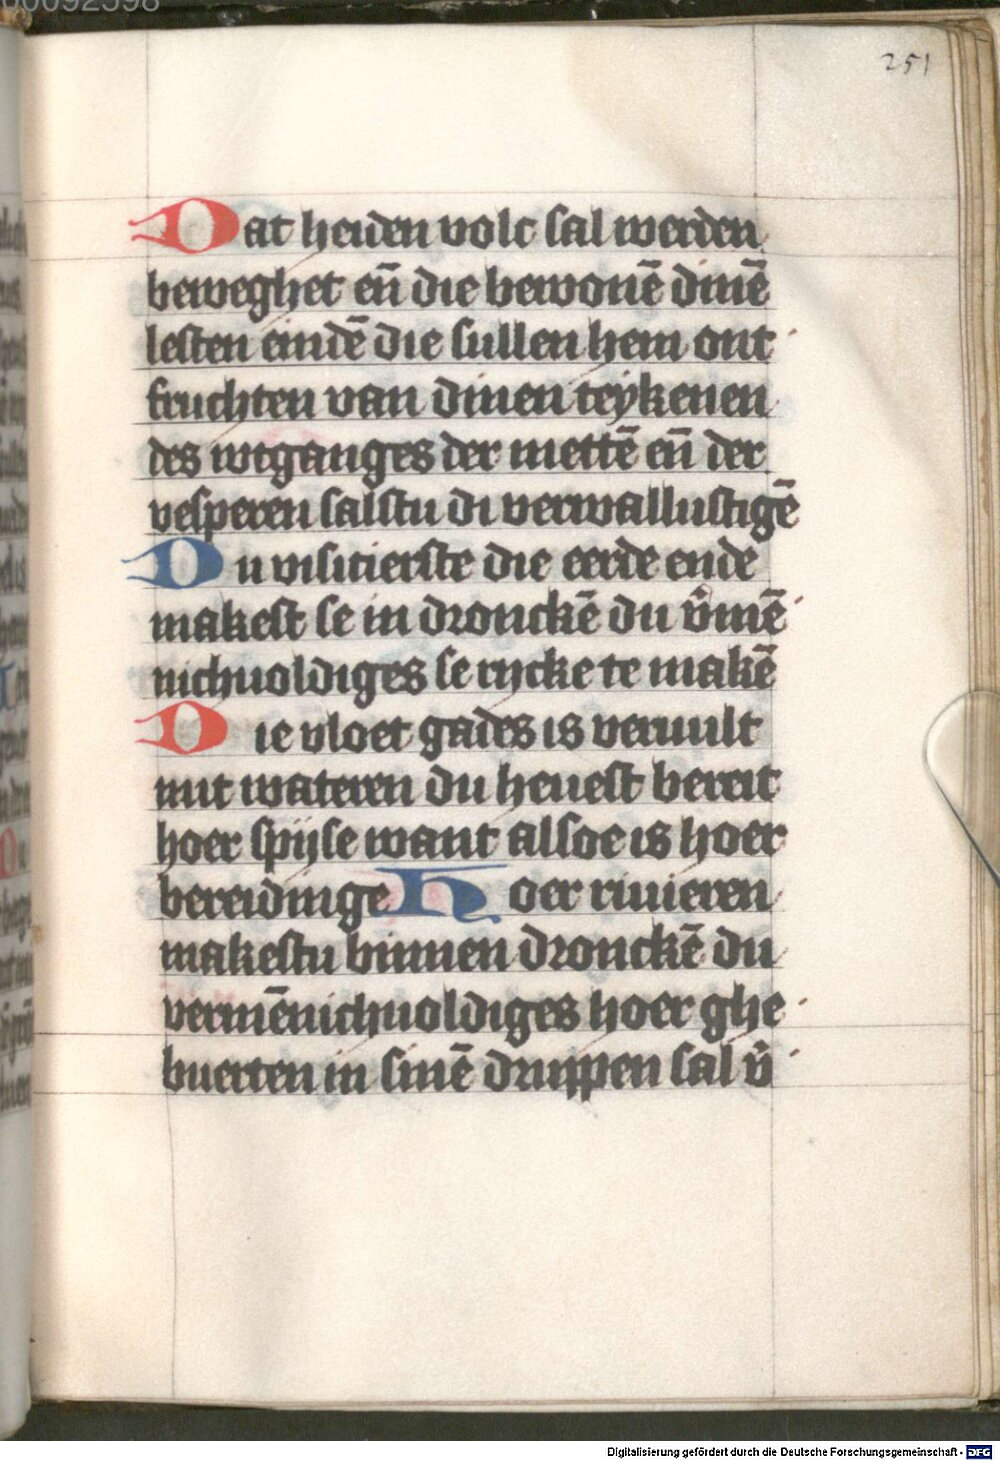 00092598
251
Dat heiden volc sal werden
beweghet en̄ die bewonē dinē
lesten eindē die sullen hem ont
fruchten van dinen teykenen
des wtganges der mettē en̄ der
vesperen salstu di verwallustigē
Du visitierste die eerde ende
makest se in dronckē du v̄mē
nichuoldiges se rycke te makē
Die vloet gades is veruult
mit wateren du heuest bereit
hoer spijse want alsoe is hoer
bereidinge Hoer riuieren
makestu binnen dronckē du
vermēnichuoldiges hoer ghe
buerten in sinē druppen sal v̄
Digitalisierung gefördert durch die Deutsche Forschungsgemeinschaft - DFG